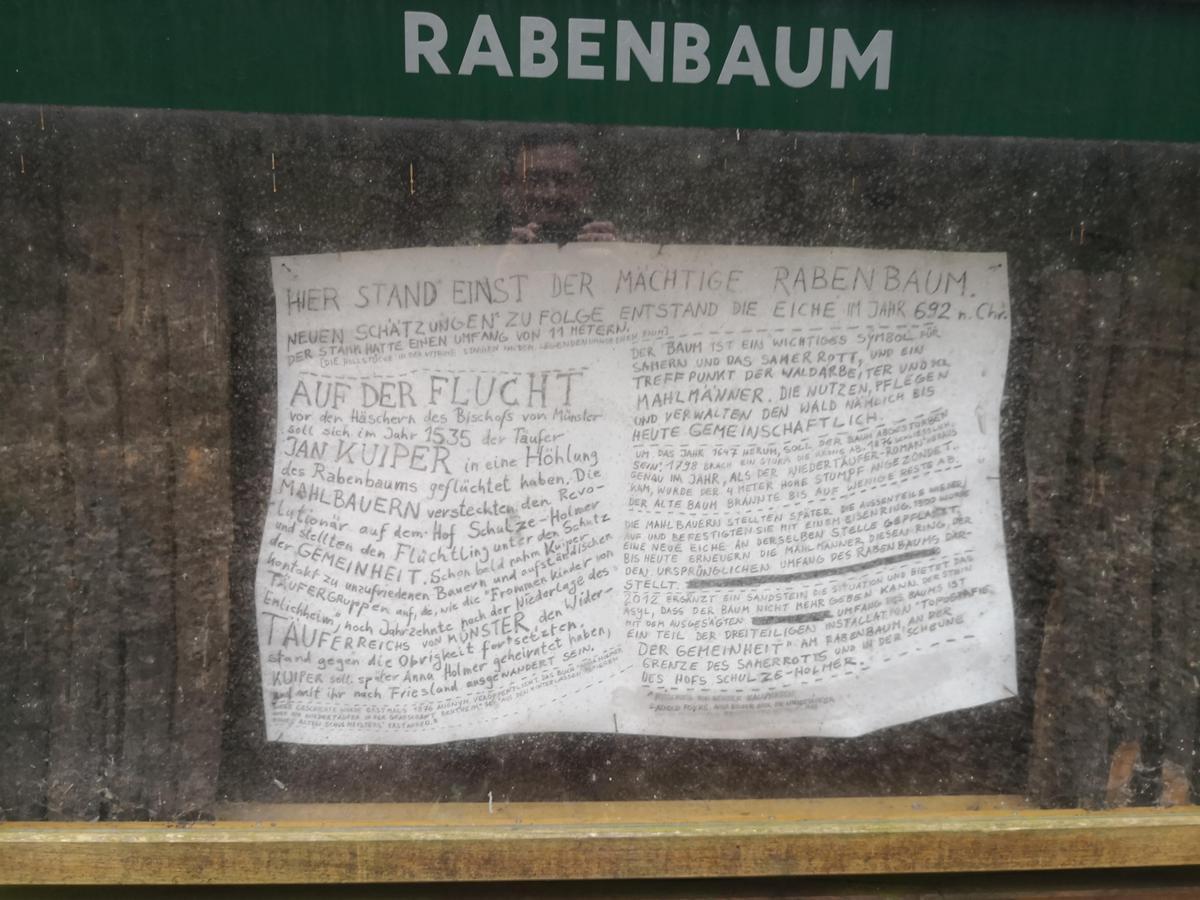 RABENBAUM
HIER STAND EINST DER MÄCHTIGE RABENBAUM.
NEUEN SCHÄTZUNGEN ZU FOLGE ENTSTAND DIE EICHE IM JAHR 692 n. Chr.
DER STAMM HATTE EINEN UMFANG VON 11 METERN.
AUF DER FLUCHT
vor den Häschern des Bischofs von Münster
soll sich im Jahr 1535 der Täufer
JAN KUIPER in eine Höhlung
des Rabenbaums geflüchtet haben. Die
MAHLBAUERN versteckten den Revo-
lutionär auf dem Hof Schulze-Holmer
und stellten den Flüchtling unter den Schutz
der GEMEINHEIT. Schon bald nahm Kuiper
Kontakt zu unzufriedenen Bauern und aufständischen
TÄUFERGRUPPEN auf, die, wie die "Frommen Kinder von
Emlichheim", noch Jahrzehnte nach der Niederlage des
TÄUFERREICHS VON MÜNSTER, den Wider-
stand gegen die Obrigkeit fortsetzten.
KUIPER soll später Anna Holmer geheiratet haben,
und mit ihr nach Friesland AUSGEWANDERT SEIN.
DER BAUM IST EIN WICHTIGES SYMBOL FÜR
SAMERN UND DAS SAMERROTT, UND EIN
TREFFPUNKT DER WALDARBEITER UND DER
MAHLMÄNNER. DIE NUTZEN, PFLEGEN
UND VERWALTEN DEN WALD NÄMLICH BIS
HEUTE GEMEINSCHAFTLICH.
UM DAS JAHR 1647 HERUM, SOLL DER BAUM ABGESTORBEN
SEIN. 1798 BRACH EIN STURM DIE KRONE AB. 1876 SCHLIESSLICH,
GENAU IM JAHR, ALS DER WIEDERTÄUFER-ROMAN HERAUS
KAM, WURDE DER 4 METER HOHE STUMPF ANGEZÜNDET.
DER ALTE BAUM BRANNTE BIS AUF WENIGE RESTE AB.
DIE MAHLBAUERN STELLTEN SPÄTER DIE AUSSENTEILE WIEDER
AUF UND BEFESTIGTEN SIE MIT EINEM EISENRING. WURDE
EINE NEUE EICHE AN DERSELBEN STELLE GEPFLANZT.
BIS HEUTE ERNEUERN DIE MAHLMÄNNER DIESEN RING, DER
DEN URSPRÜNGLICHEN UMFANG DES RABENBAUMS DAR-
STELLT.
2012 ERGÄNZT EIN SANDSTEIN DIE SITUATION UND BIETET DAS
ASYL, DASS DER BAUM NICHT MEHR GEBEN KANN. DER STEIN
MIT DEM AUSGESÄGTEN UMFANG DES BAUMS IST
EIN TEIL DER DREITEILIGEN INSTALLATION "TOPOGRAFIE
DER GEMEINHEIT" AM RABENBAUM, AN DER
GRENZE DES SAMERROTTS UND IN DER SCHEUNE
DES HOFS SCHULZE-HOLMER.